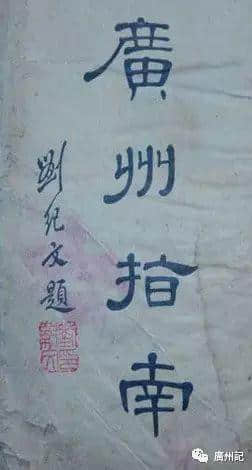 廣州指南
劉紀文題
廣州記